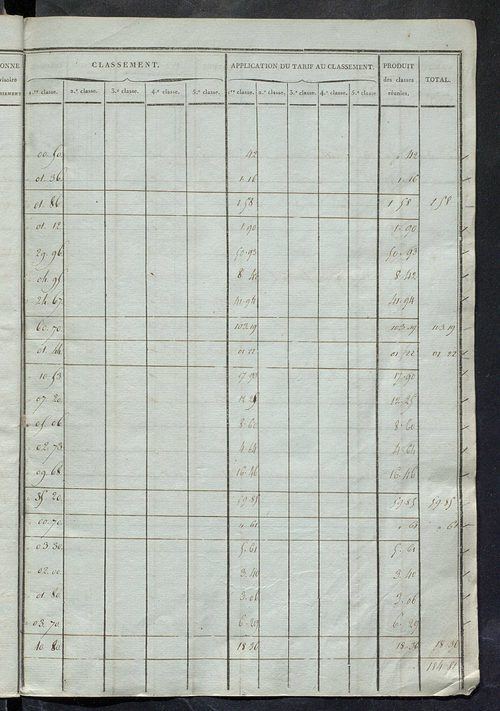 ONNE CLASSEMENT. APPLICATION DU TARIF AU CLASSEMENT. PRODUIT
des classes réunies. TOTAL.
1.re classe. 2.e classe. 3.e classe. 4.e classe. 5.e classe. 1.re classe. 2.e classe. 3.e classe. 4.e classe. 5.e classe
00.50 42 42
01.36 1.16 1.16
01.86 1.58 1.58 1.58
01.12 1.90 1.90
29.96 50.93 50.93
04.95 8.42 8.42
24.67 41.94 41.94
60.70 103.19 103.19 103.19
01.44 01.22 01.22 01.22
10.53 17.90 17.90
07.20 12.25 12.25
05.06 8.60 8.60
02.73 4.64 4.64
09.68 16.46 16.46
35.20 59.85 59.85 59.85
00.70 61 61 61
03.30 5.61 5.61
02.00 3.40 3.40
01.80 3.06 3.06
03.70 6.29 6.29
10.80 18.36 18.36 18.36
184.81